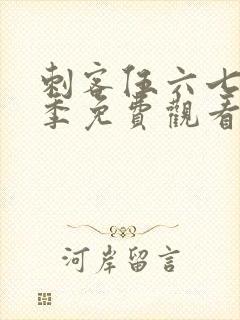 刺客伍六七
季免費觀看
河岸留言